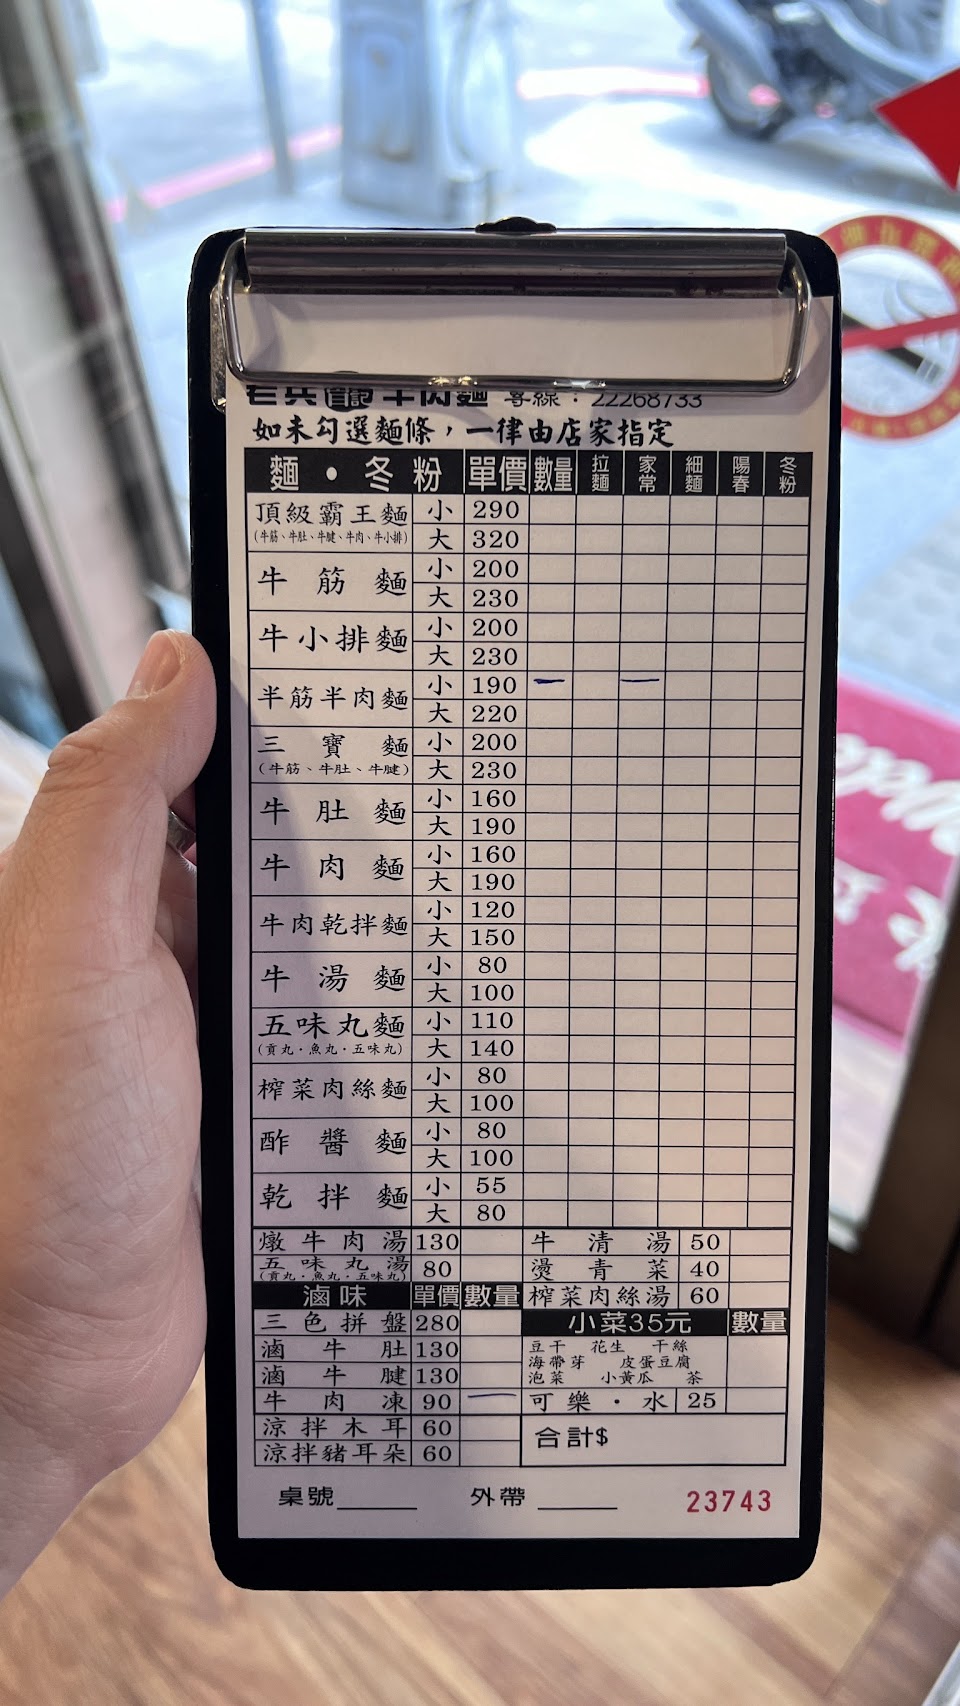 牛肉麵 專線：22268733
如未勾選麵條，一律由店家指定
麵・冬粉 單價 數量 拉麵 家常 細麵 陽春 冬粉
頂級霸王麵 小 290
(牛筋、牛肚、牛腱、牛肉、牛小排) 大 320
牛筋麵 小 200
大 230
牛小排麵 小 200
大 230
半筋半肉麵 小 190 一 一
大 220
三寶麵 小 200
(牛筋、牛肚、牛腱) 大 230
牛肚麵 小 160
大 190
牛肉麵 小 160
大 190
牛肉乾拌麵 小 120
大 150
牛湯麵 小 80
大 100
五味丸麵 小 110
(貢丸・魚丸・五味丸) 大 140
榨菜肉絲麵 小 80
大 100
酢醬麵 小 80
大 100
乾拌麵 小 55
大 80
燉牛肉湯 130 牛清湯 50
五味丸湯 80 燙青菜 40
(貢丸・魚丸・五味丸)
滷味 單價 數量 榨菜肉絲湯 60
三色拼盤 280 小菜35元 數量
滷牛肚 130 豆干 花生 干絲
海帶芽 皮蛋豆腐
滷牛腱 130 泡菜 小黃瓜 茶
牛肉凍 90 一 可樂・水 25
涼拌木耳 60 合計$
涼拌豬耳朵 60
桌號 外帶 23743